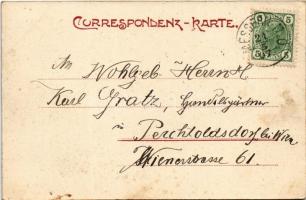 CORRESPONDENZ-KARTE.
5 5
An Wohlgeb Herrn
Karl Gratz, Handelsgärtner
in Perchtoldsdorf bei Wien
Wienerstrasse 61.